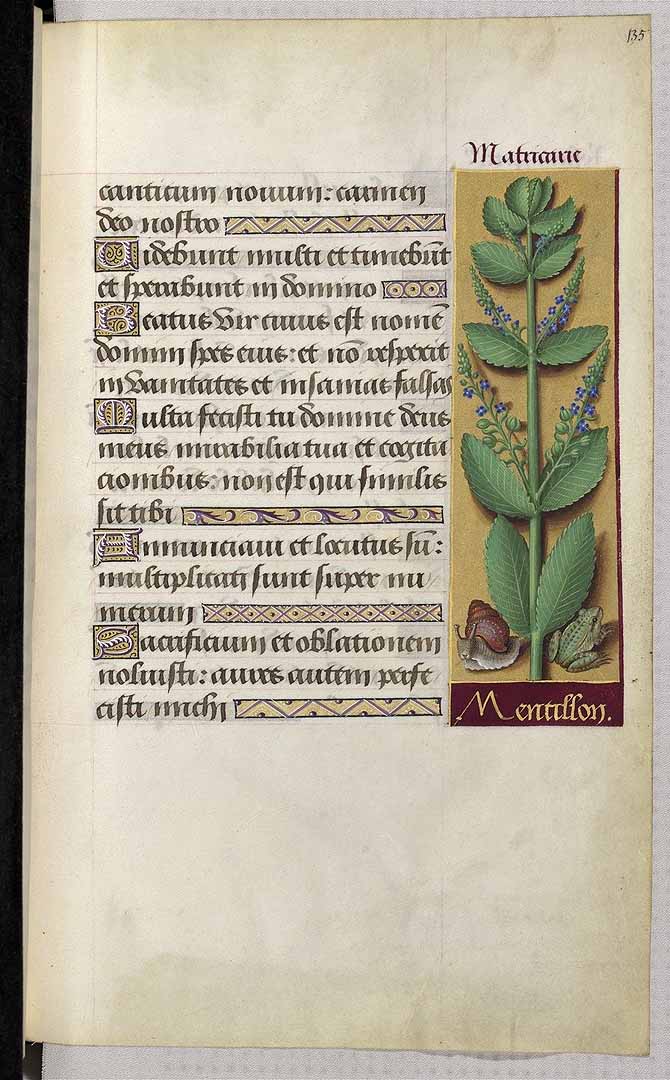 135
Matricarie
canticum novum: carmen
deo nostro
Videbunt multi et timebūt
et sperabunt in domino
Beatus vir cuius est nomē
domini spes eius: et nō respexit
in vanitates et insanias falsas
Multa fecisti tu domine deus
meus mirabilia tua et cogita
cionibus: non est qui similis
sit tibi
Annunciavi et locutus sū:
multiplicati sunt super nu
merum
Sacrificium et oblationem
noluisti: aures autem perfe
cisti michi
Mentillon.